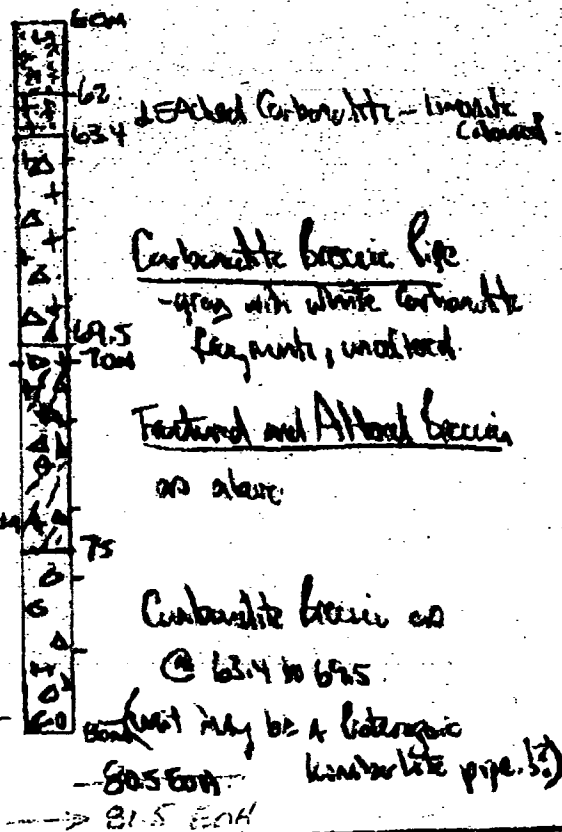 60M
62
LEAched Carbonatite - Limonite
Coloured.
63.4
Carbonatite Breccia Pipe
- gray with white Carbonatite
fragments, unaltered.
69.5
70M
Fractured and Altered Breccia
as above
75
Carbonatite breccia as
@ 63.4 to 69.5
80M
(unit may be a
kimberlite pipe.!?)
80.5 EOH
→ 81.5 EOH